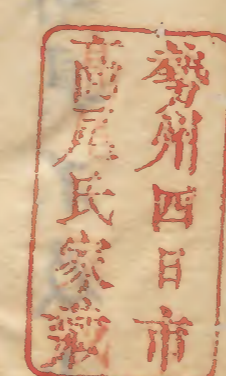 勢州四日市
高尾氏家藏